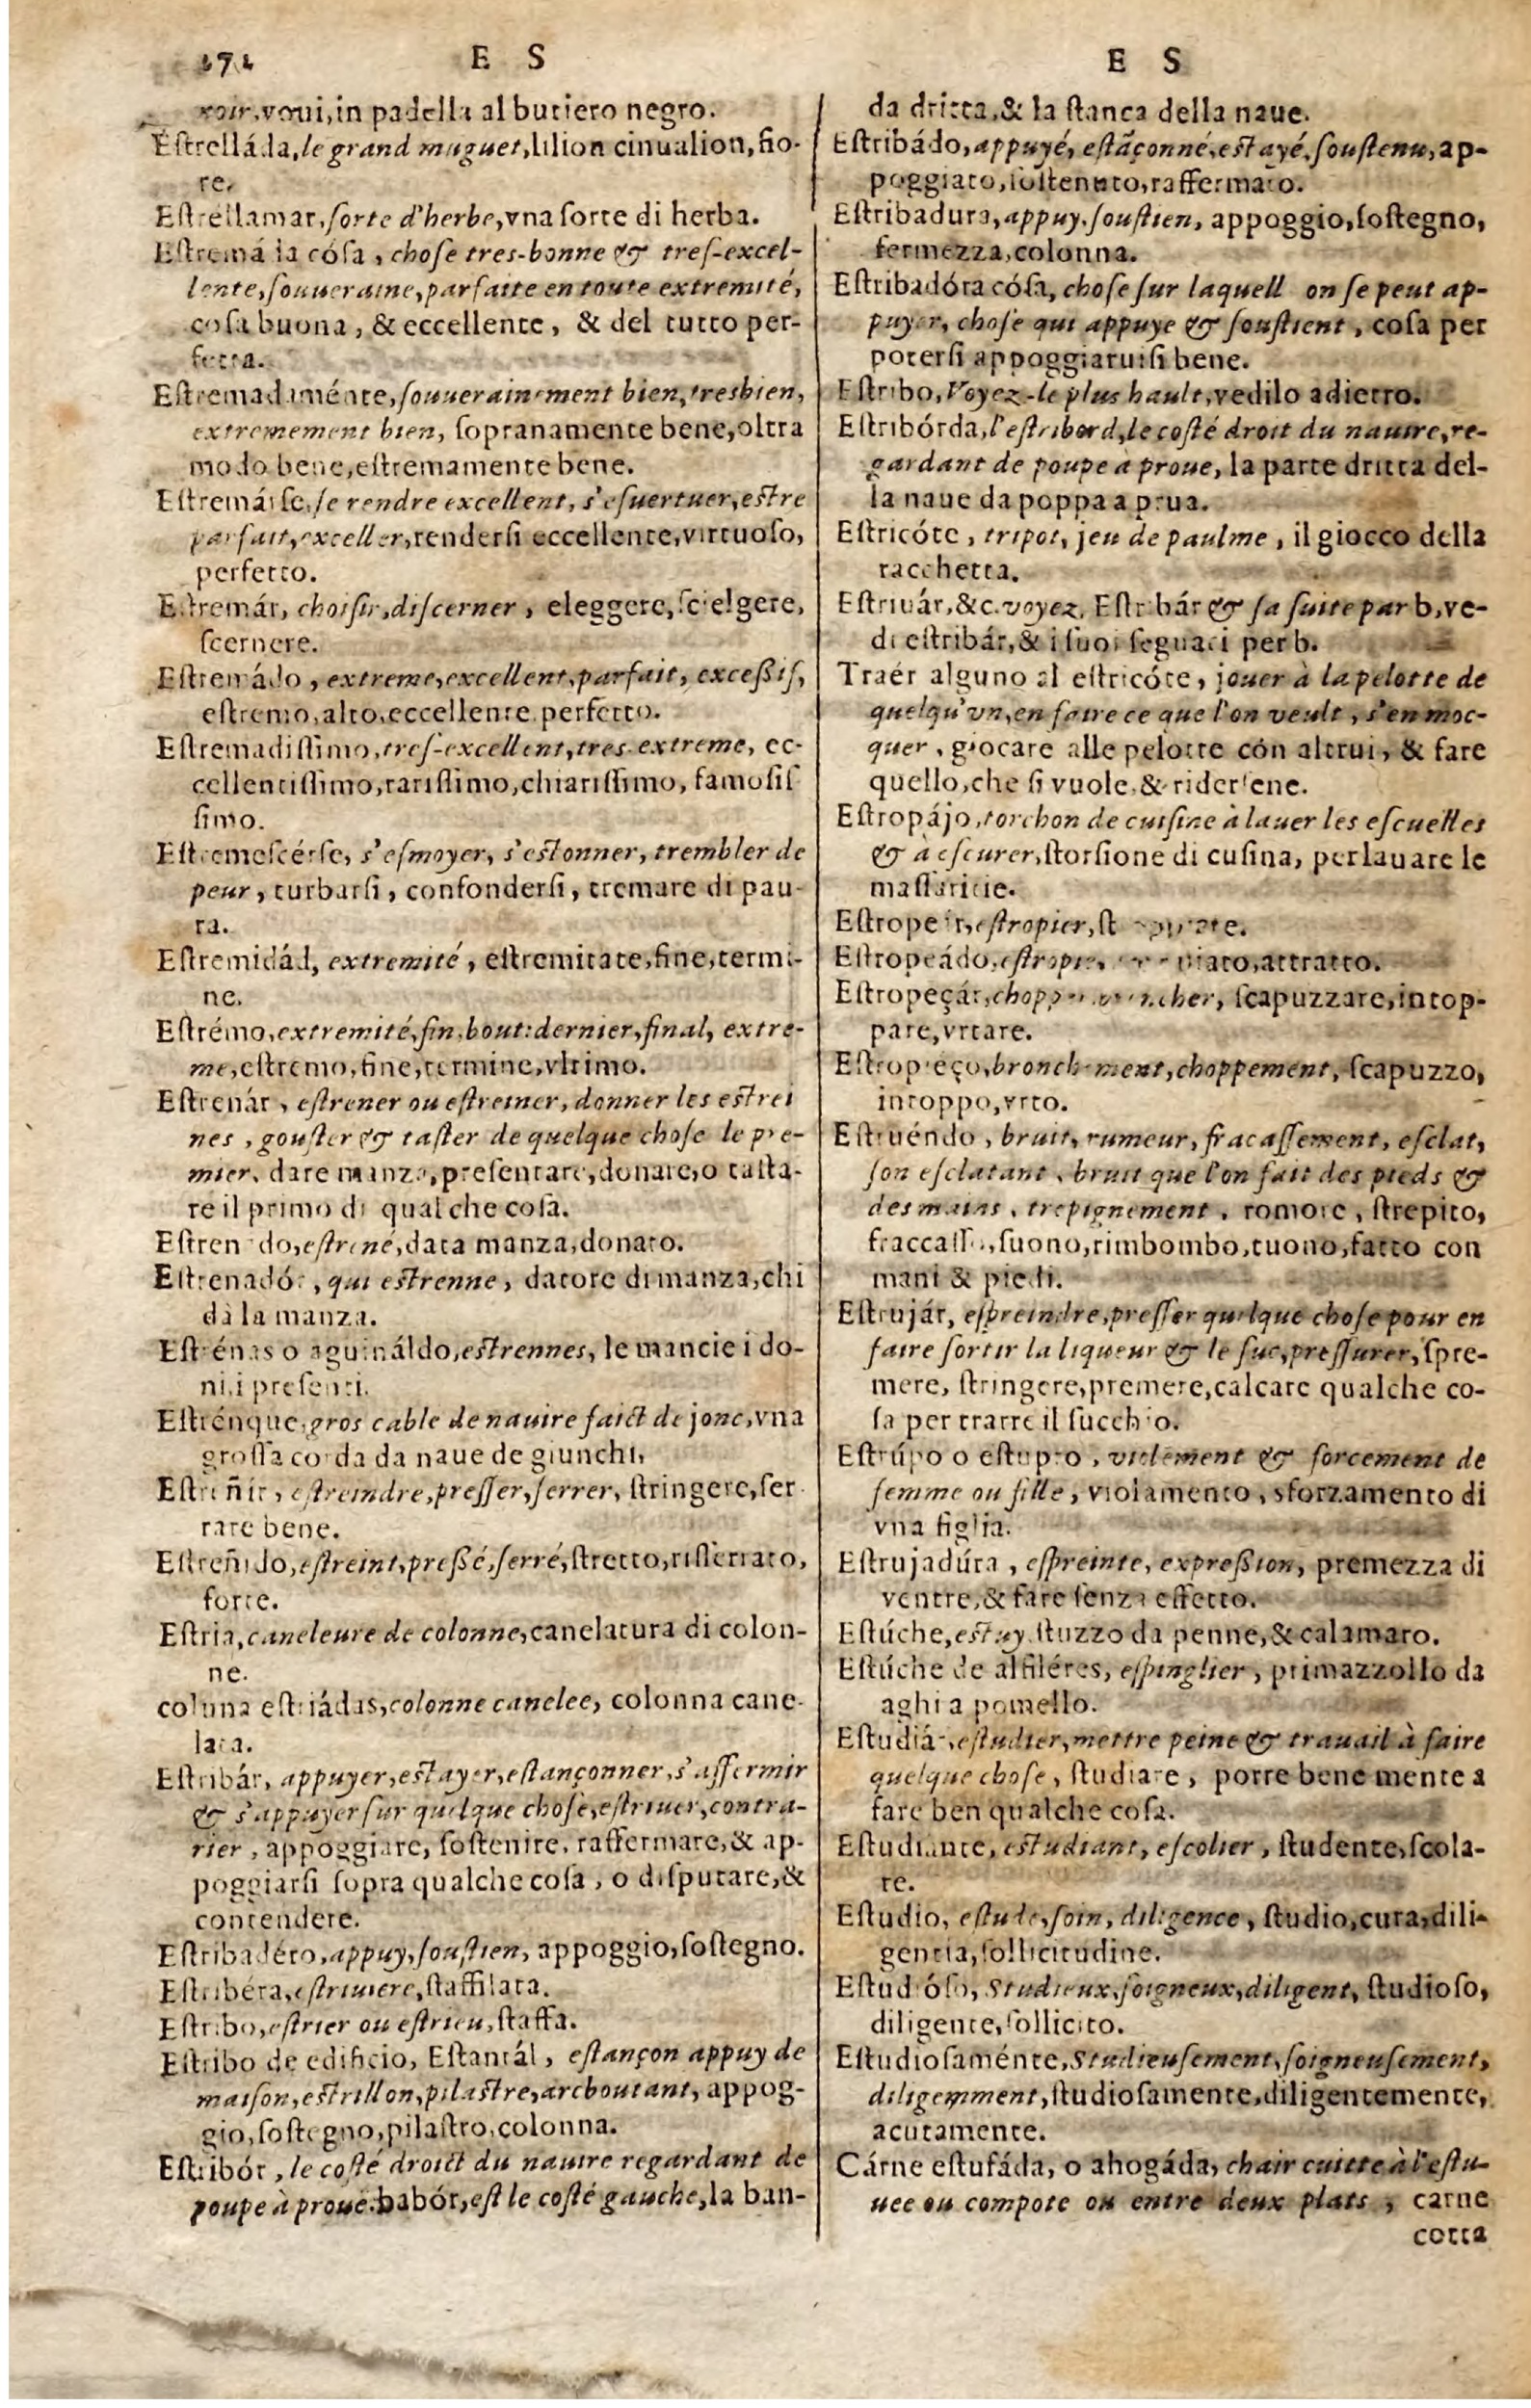 171
E S
E S
voir, voui, in padella al butiero negro.
Eſtrelláda, le grand muguet, lilion cinualion, fio-
re.
Eſtrellamar, ſorte d'herbe, vna ſorte di herba.
Eſtremáda cóſa, choſe tres-bonne & treſ-excel-
lente, ſouueraine, parfaite en toute extremité,
coſa buona, & eccellente, & del tutto per-
fetta.
Eſtremadaménte, ſouuerainement bien, tresbien,
extremement bien, ſopranamente bene, oltra
modo bene, eſtremamente bene.
Eſtremárſe, ſe rendre excellent, s'eſuertuer, eſtre
parfait, exceller, renderſi eccellente, virtuoſo,
perfetto.
Eſtremár, choiſir, diſcerner, eleggere, ſcielgere,
ſcernere.
Eſtremádo, extreme, excellent, parfait, exceßif,
eſtremo, alto, eccellente, perfetto.
Eſtremadiſſimo, treſ-excellent, tres-extreme, ec-
cellentiſſimo, rariſſimo, chiariſſimo, famoſiſ
ſimo.
Eſtremeſcérſe, s'eſmoyer, s'eſtonner, trembler de
peur, turbarſi, confonderſi, tremare di pau-
ra.
Eſtremidád, extremité, eſtremitate, fine, termi-
ne.
Eſtrémo, extremité, fin, bout: dernier, final, extre-
me, eſtremo, fine, termine, vltimo.
Eſtrenár, eſtrener ou eſtreiner, donner les eſtrei
nes, gouſter & taſter de quelque choſe le pre-
mier, dare manza, preſentare, donare, o taſta-
re il primo di qualche coſa.
Eſtrenado, eſtrené, data manza, donato.
Eſtrenadór, qui eſtrenne, datore di manza, chi
dà la manza.
Eſtrénas o aguináldo, eſtrennes, le mancie i do-
ni, i preſenti.
Eſtrénque, gros cable de nauire faict de jonc, vna
groſſa corda da naue de giunchi,
Eſtriñir, eſtreindre, preſſer, ſerrer, ſtringere, ſer
rare bene.
Eſtreñido, eſtreint, preßé, ſerré, ſtretto, riſſerrato,
forte.
Eſtria, caneleure de colonne, canelatura di colon-
ne.
coluna eſtriádas, colonne canelee, colonna cane-
lata.
Eſtribár, appuyer, eſtayer, eſtançonner, s'affermir
& s'appuyer ſur quelque choſe, eſtriuer, contra-
rier, appoggiare, ſoſtenire, raffermare, & ap-
poggiarſi ſopra qualche coſa, o diſputare, &
contendere.
Eſtribadéro, appuy, ſouſtien, appoggio, ſoſtegno.
Eſtribéra, eſtriuiere, ſtaffilata.
Eſtribo, eſtrier ou eſtrieu, ſtaffa.
Eſtribo de edificio, Eſtantál, eſtançon appuy de
maiſon, eſtrillon, pilaſtre, arcboutant, appog-
gio, ſoſtegno, pilaſtro, colonna.
Eſtribór, le coſté droict du nauire regardant de
poupe à proue. babór, eſt le coſté gauche, la ban-
da dritta, & la ſtanca della naue.
Eſtribádo, appuyé, eſtãçonné, eſtayé, ſouſtenu, ap-
poggiato, ſoſtenuto, raffermato.
Eſtribadura, appuy, ſouſtien, appoggio, ſoſtegno,
fermezza, colonna.
Eſtribadóra cóſa, choſe ſur laquell on ſe peut ap-
puyer, choſe qui appuye & ſouſtient, coſa per
poterſi appoggiaruiſi bene.
Eſtribo, Voyez-le plus hault, vedilo adietro.
Eſtribórda, l'eſtribord, le coſté droit du nauire, re-
gardant de poupe à proue, la parte dritta del-
la naue da poppa a prua.
Eſtricóte, tripot, jeu de paulme, il giocco della
racchetta.
Eſtriuár, &c. voyez, Eſtribár & ſa ſuite par b, ve-
di eſtribár, & i ſuoi ſeguaci per b.
Traér alguno al eſtricóte, jouer à la pelotte de
quelqu'vn, en faire ce que l'on veult, s'en moc-
quer, giocare alle pelotte cón altrui, & fare
quello, che ſi vuole, & riderſene.
Eſtropájo, torchon de cuiſine à lauer les eſcuelles
& a eſcurer, ſtorſione di cuſina, per lauare le
maſſaritie.
Eſtropeár, eſtropier,
Eſtropeádo, attratto.
Eſtropeçár, ſcapuzzare, intop-
pare, vrtare.
Eſtropieço, bronchement, choppement, ſcapuzzo,
intoppo, vrto.
Eſtruéndo, bruit, rumeur, fracaſſement, eſclat,
ſon eſclatant, bruit que l'on fait des pieds &
des mains, trepignement, romore, ſtrepito,
fraccaſſo, ſuono, rimbombo, tuono, fatto con
mani & piedi.
Eſtrujár, eſpreindre, preſſer quelque choſe pour en
faire ſortir la liqueur & le ſuc, preſſurer, ſpre-
mere, ſtringere, premere, calcare qualche co-
ſa per trarre il ſucchio.
Eſtrúpo o eſtupro, violement & forcement de
femme ou fille, violamento, sforzamento di
vna figlia.
Eſtrujadúra, eſpreinte, expreßion, premezza di
ventre, & fare ſenza effetto.
Eſtúche, eſtuy, ſtuzzo da penne, & calamaro.
Eſtúche de alfiléres, eſpinglier, primazzollo da
aghi a pomello.
Eſtudiár, eſtudier, mettre peine & trauail à faire
quelque choſe, ſtudiare, porre bene mente a
fare ben qualche coſa.
Eſtudiante, eſtudiant, eſcolier, ſtudente, ſcola-
re.
Eſtudio, eſtude, ſoin, diligence, ſtudio, cura, dili-
gentia, ſollicitudine.
Eſtudióſo, Studieux, ſoigneux, diligent, ſtudioſo,
diligente, ſollicito.
Eſtudioſaménte, Studieuſement, ſoigneuſement,
diligemment, ſtudioſamente, diligentemente,
acutamente.
Cárne eſtufáda, o ahogáda, chair cuitte à l'eſtu-
uee ou compote ou entre deux plats, carne
cotta